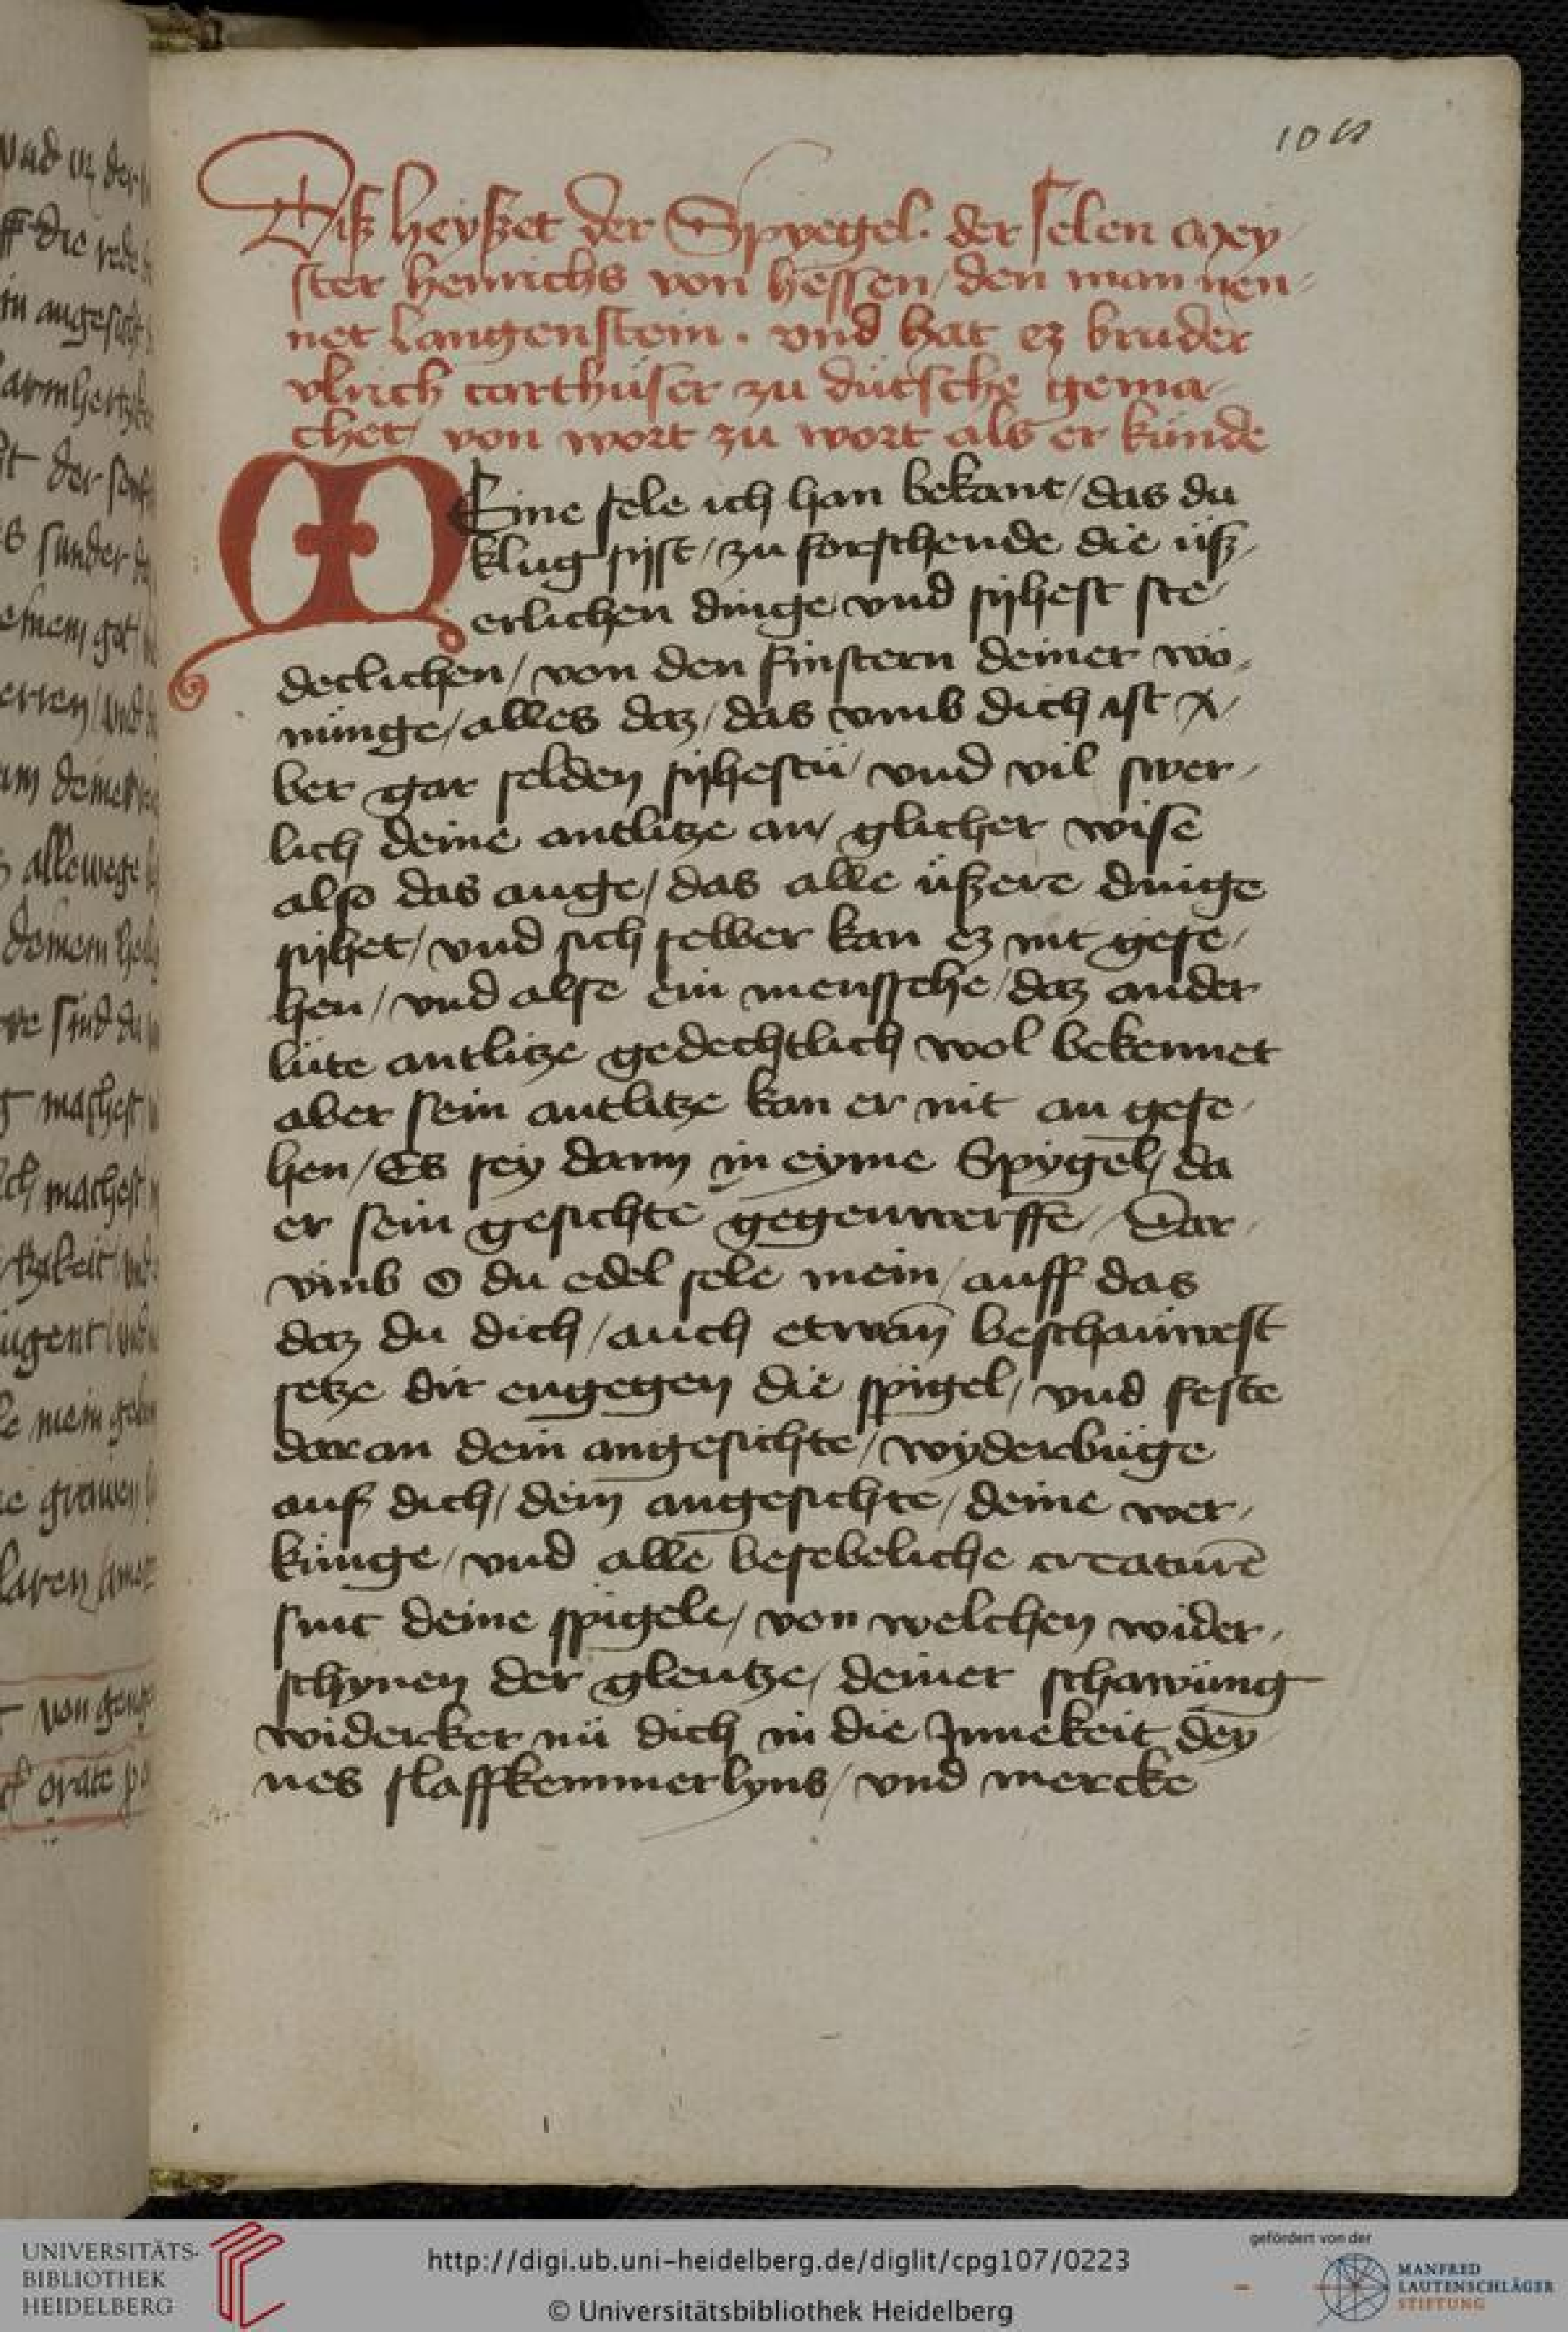 Disz heyszet der Spyegel · der selen Mey
ster heinrichs von hessen / den man nen
net Langenstein · vnd hat ez bruder
vlrich carthüser zu dütsche gema
chet / von wort zu wort als er künde
MEine sele ich han bekant / das du
klug sijst / zu forschende die üsz
erlichen dinge vnd sijhest ste
declichen / von den finstern deiner wo
nünge / alles daz / das vmb dich ist A
ber gar selden sijhestü / vnd vil swer
lich deine antlitze an / glicher wise
also das auge / das alle üszere dinge
sijhet / vnd sich selber kan ez nit gese
hen / vnd alse ein menssche / daz ander
lüte antlitze gedechtlich wol bekennet
aber sein antlitze kan er nit an gese
hen / Es sey dann in eyme Spygel / da
er sein gesichte gegenwerffe / Dar
vmb O du edel sele mein / auff das
daz du dich / auch etwan beschauwest
setze dir engegen die spigel / vnd feste
dar an dein angesichte / wyderbüge
auf dich / dein angesichte / deine wer
künge / vnd alle besebeliche creaturē
sint deine spigele / von welchen wider
schynen der glentze / deiner schawüng
widerker nü dich in die Innekeit dey
nes slaffkemmerlyns / vnd mercke
UNIVERSITÄTS-
BIBLIOTHEK
HEIDELBERG
http://digi.ub.uni-heidelberg.de/diglit/cpg107/0223
© Universitätsbibliothek Heidelberg
gefördert von der
MANFRED
LAUTENSCHLÄGER
STIFTUNG